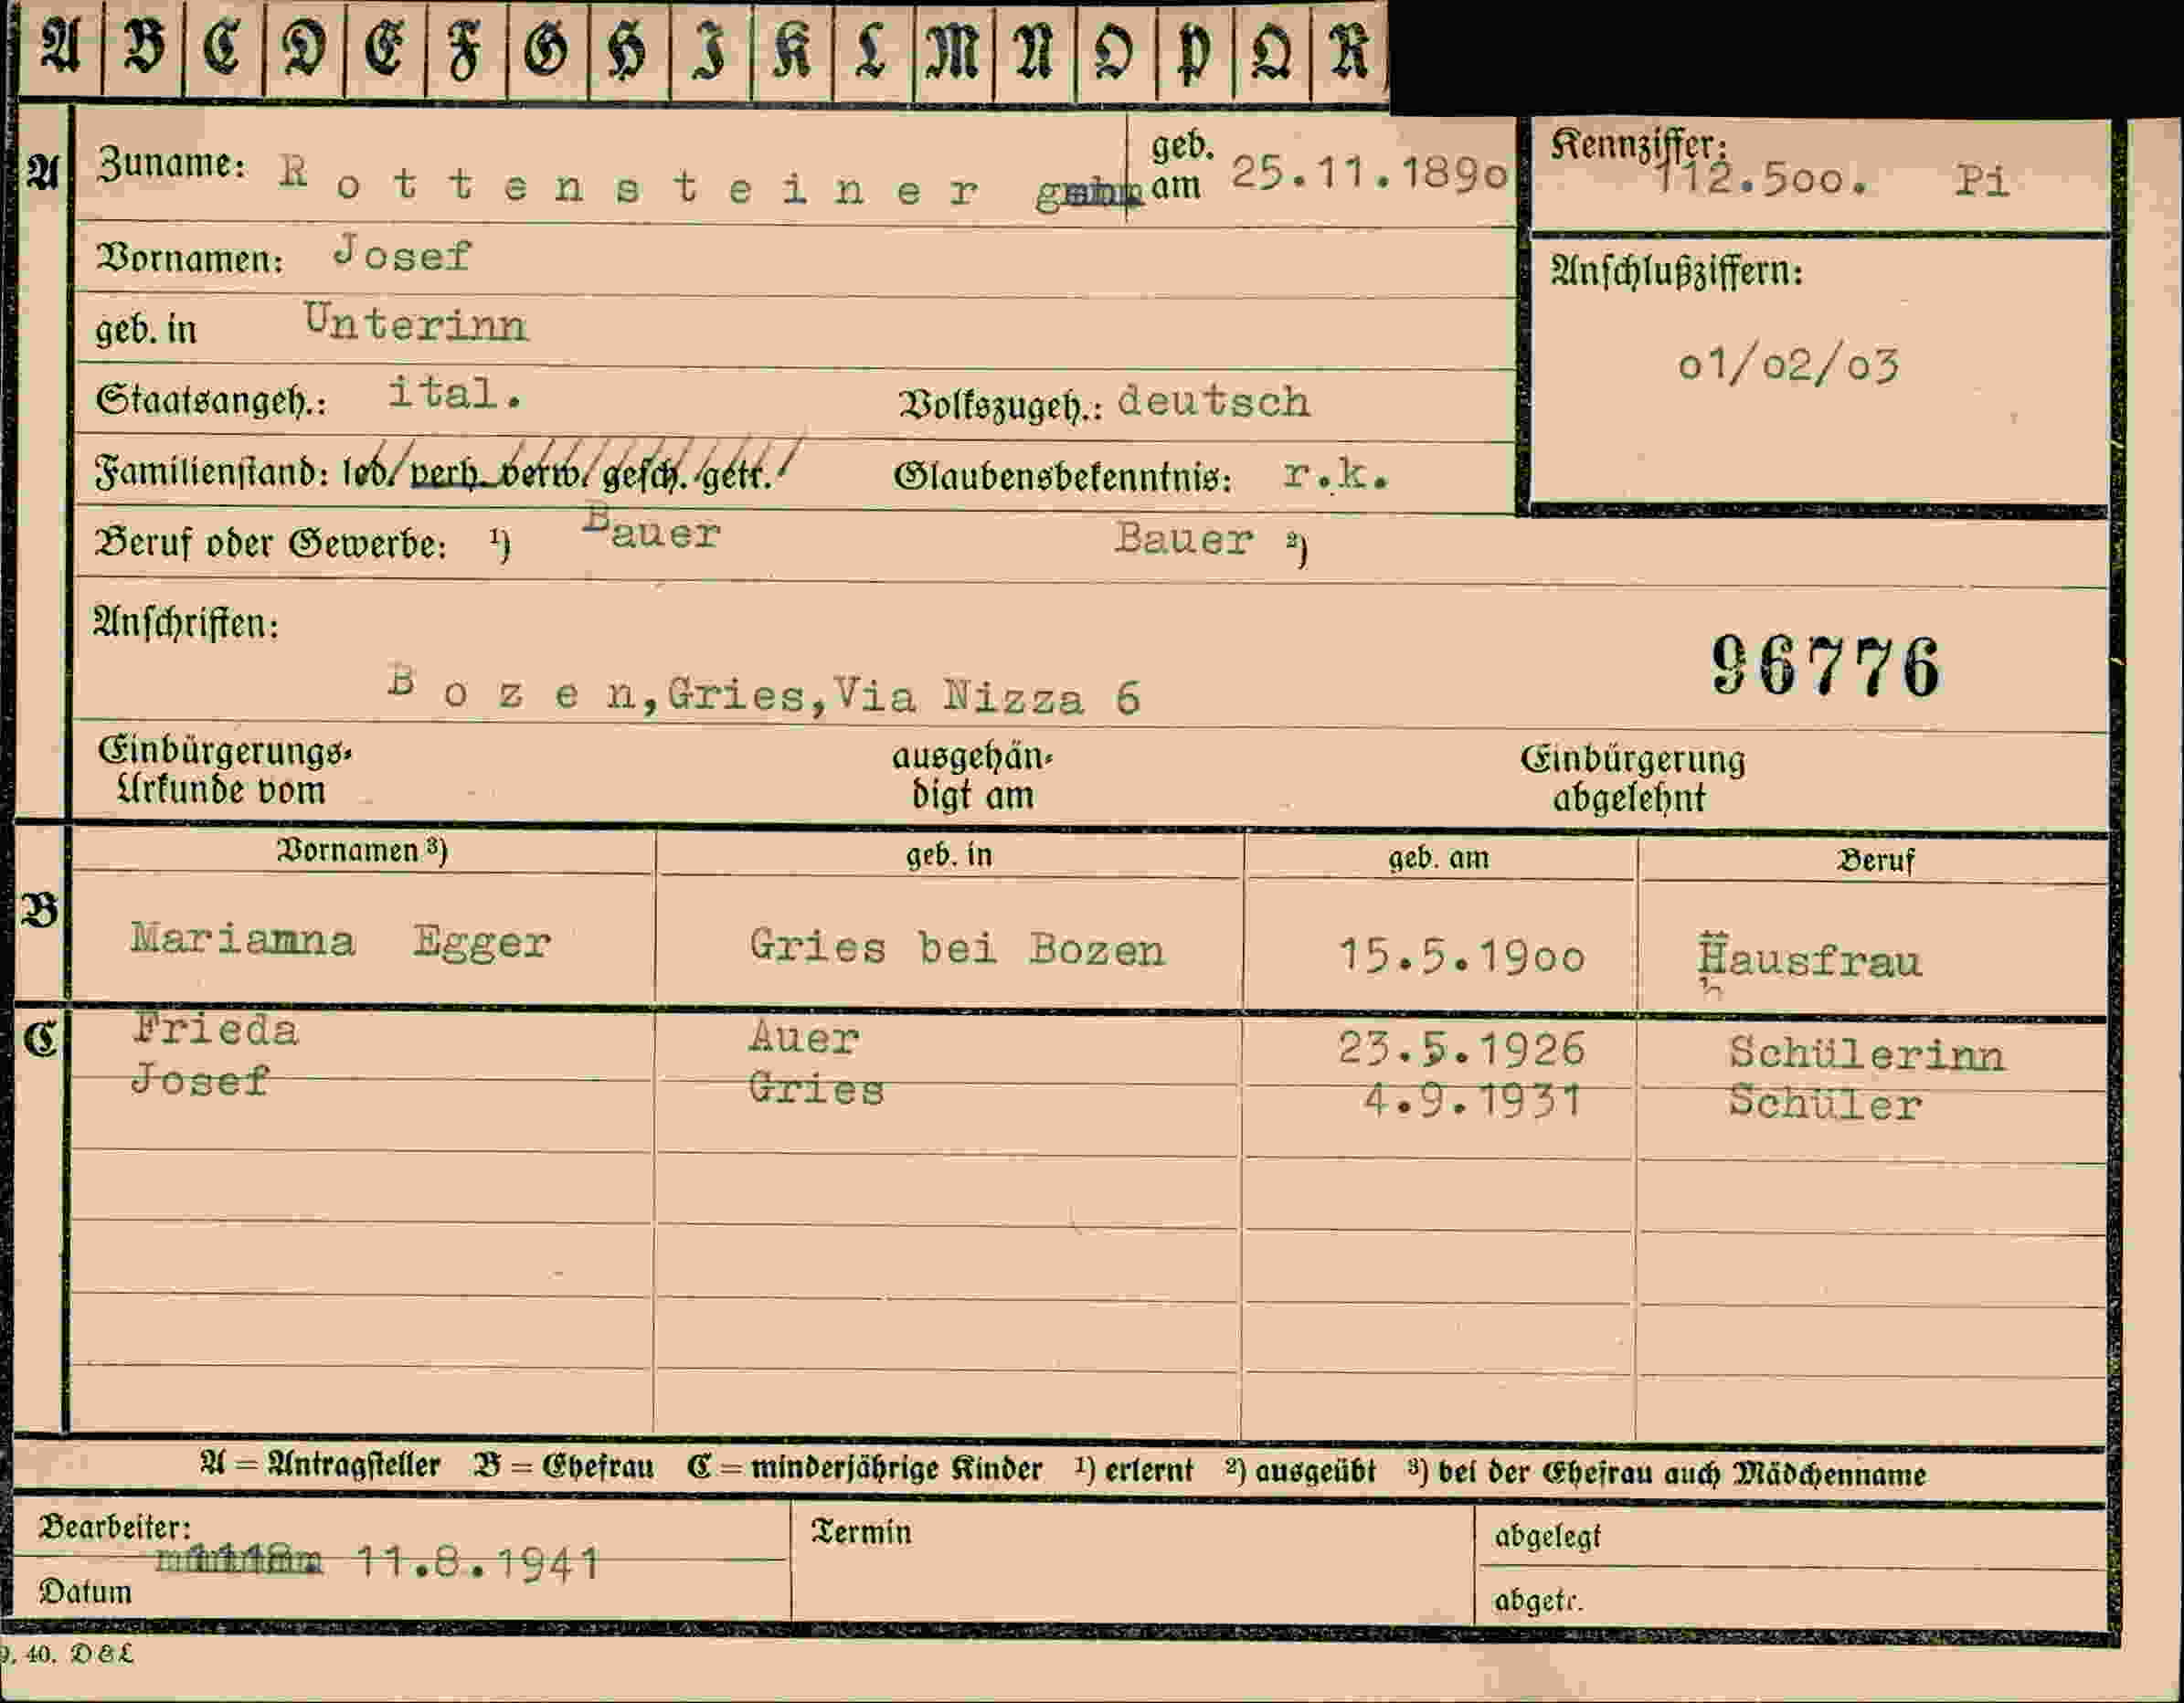 A B C D E F G H I K L M N O P Q R
A Zuname: Rottensteiner geb. am 25.11.1890 Kennziffer: 112.500. Pi
Vornamen: Josef
Anschlußziffern:
geb. in Unterinn
01/02/03
Staatsangeh.: ital. Volkszugeh.: deutsch
Familienstand: led/ verh. verw. gesch. getr. Glaubensbekenntnis: r.k.
Beruf oder Gewerbe: ¹) Bauer Bauer ²)
Anschriften:
96776
Bozen,Gries,Via Nizza 6
Einbürgerungs- ausgehän- Einbürgerung
Urkunde vom digt am abgelehnt
Vornamen ³) geb. in geb. am Beruf
B
Marianna Egger Gries bei Bozen 15.5.1900 Hausfrau
C Frieda Auer 23.5.1926 Schülerinn
Josef Gries 4.9.1931 Schüler
A = Antragsteller B = Ehefrau C = minderjährige Kinder ¹) erlernt ²) ausgeübt ³) bei der Ehefrau auch Mädchenname
Bearbeiter: Termin abgelegt
11.8.1941
Datum abgetr.
9. 40. D&L